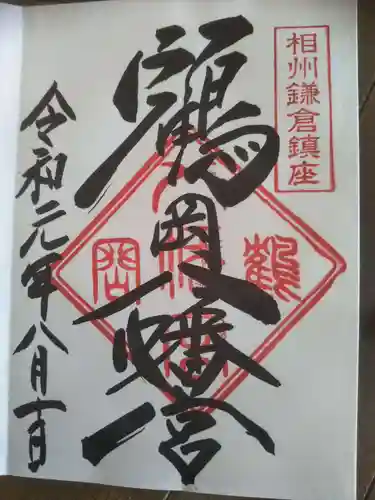 相州鎌倉鎮座
鶴岡八幡宮
令和元年八月十日